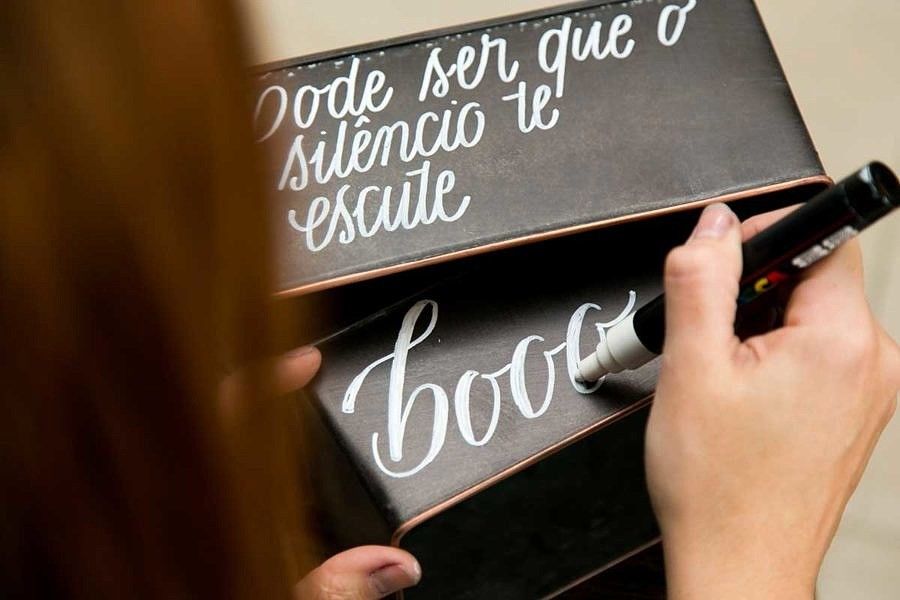 Pode ser que o
silêncio te
escute
booo